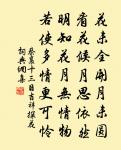 花未全開月未圓
看花候月思依然
明知花月無情物
若使多情更可憐
蔡襄十三日吉祥探花
詞典網集